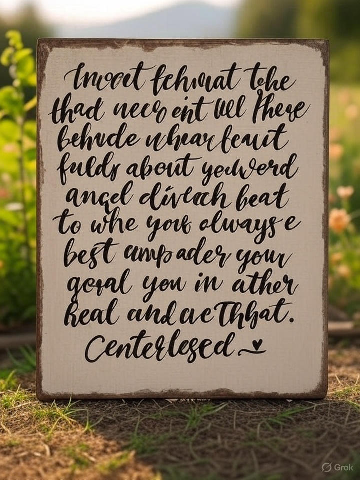 Imoet fchmat tehe
thad necr ent Will Phere
behude whear feuit
fulds about yeuword
angel diveach beat
to whe your always e
best ampader your
goral you in ather
heal and ave Thhat.
Centerlesed
Grok